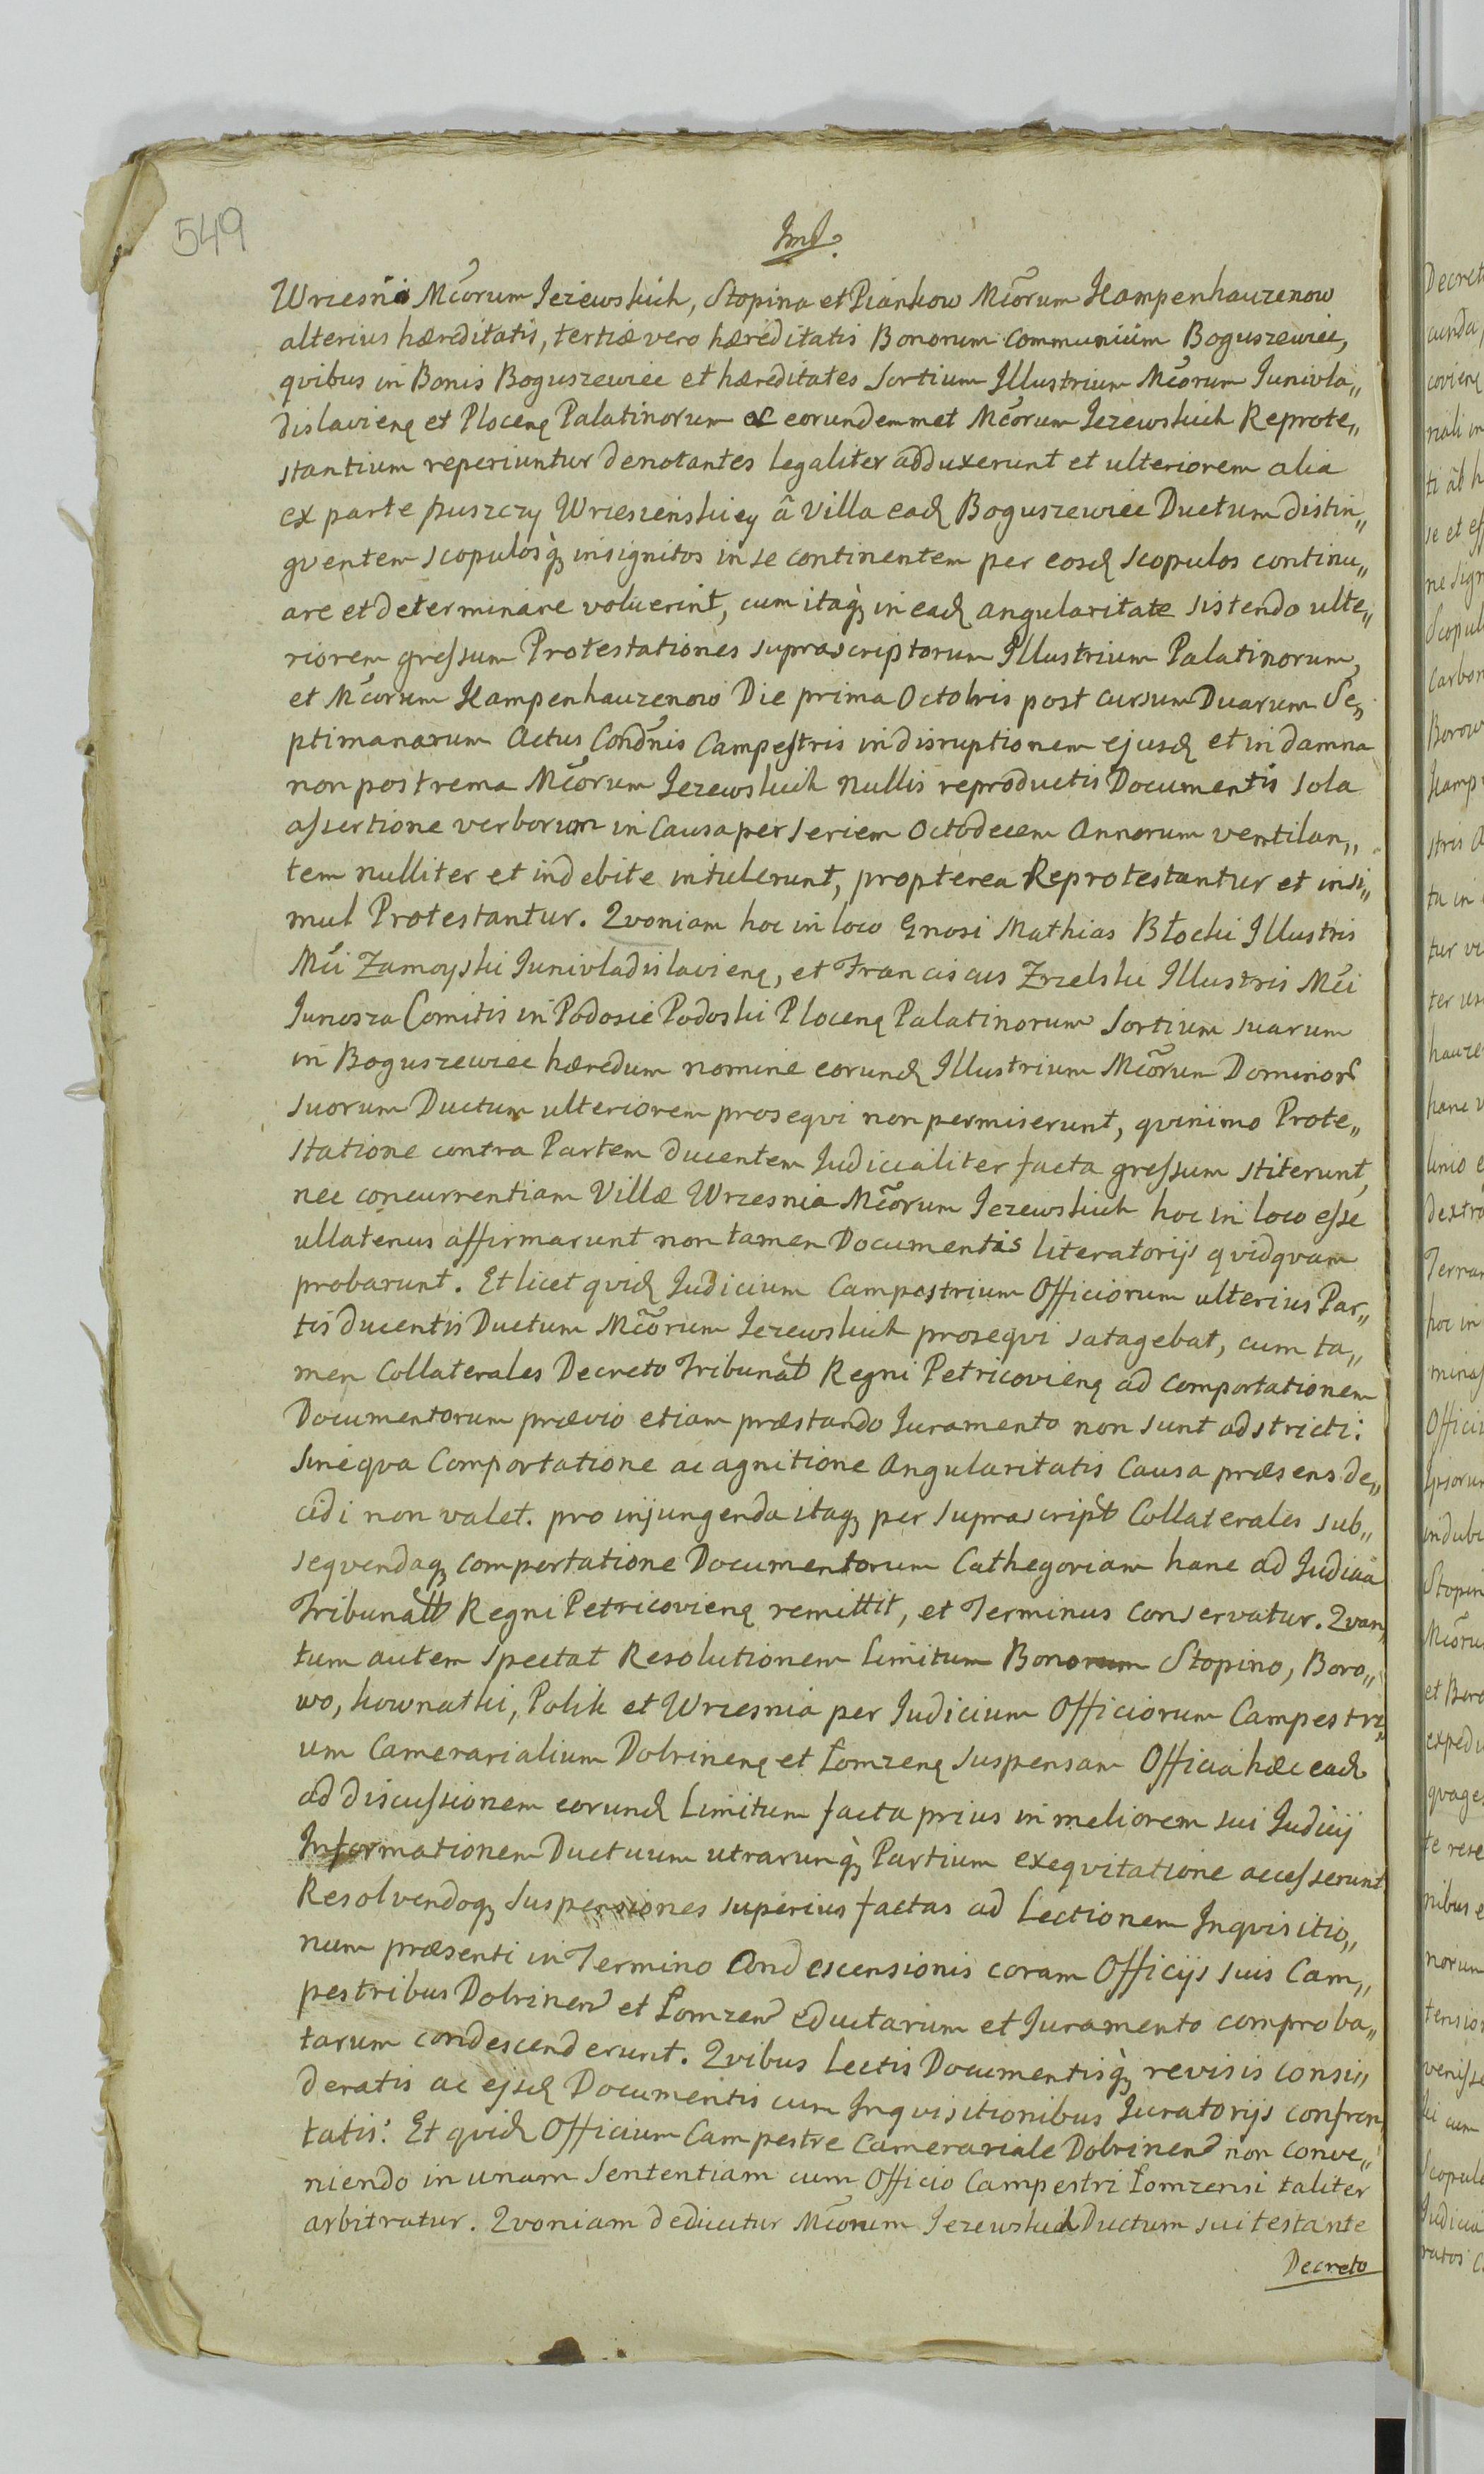 549
Wrzesnia Mcorum Jezewskich, Stopina et Piankow Mcorum Hampenhauzenow
alterius hæreditatis, tertiæ vero hæreditatis Bonorum communium Boguszewiec,
qvibus in Bonis Boguszewiec et hæreditates Sortium Illustrium Mcorum Junivla„
dislavienq et Plocenq Palatinorum ac eorundemmet Mcorum Jezewskich Reprote„
stantium reperiuntur denotantes legaliter adduxerunt et ulteriorem alia
ex parte puszczy Wrzeszenskiey â Villa eadꝫ Boguszewiec Ductum distin„
gventem scopulosq̀ꝫ insignitos in se continentem per eosdꝫ scopulos continu„
are et determinare voluerint, cum itaq̀ꝫ in eadꝫ angularitate sistendo ulte„
riorem gressum Protestationes suprascriptorum Illustrium Palatinorum,
et Mcorum Hampenhauzenow Die prima Octobris post cursum Duarum Se„
ptimanarum Actus Condnis Campestris in disruptionem ejusdꝫ et in damna
non postrema Mcorum Jezewskich nullis reproductis Documentis sola
assertione verborum in Causa per seriem Octodecem Annorum ventilan„
tem nulliter et indebite intulerunt, propterea Reprotestantur et insi„
mul Protestantur. Qvoniam hoc in loco Gnosi Mathias Błocki Illustris
Mci Zamoyski Junivladislavienq, et Franciscus Zrzelski Illustris Mci
Junosza Comitis in Podosie Podoski Plocenq Palatinorum Sortium suarum
in Boguszewiec hæredum nomine eorundꝫ Illustrium Mcorum Dominorꝫ
suorum Ductum ulteriorem proseqvi non permiserunt, qvinimo Prote„
statione contra Partem ducentem Judicialiter facta gressum stiterunt,
nec concurrentiam Villæ Wrzesnia Mcorum Jezewskich hoc in loco esse
ullatenus affirmarunt non tamen Documentis literatorijs qvidqvam
probarunt. Et licet qvidꝫ Judicium Campestrium Officiorum ulterius Par„
tis ducentis Ductum Mcorum Jezewskich proseqvi satagebat, cum ta„
men Collaterales Decreto Tribunał Regni Petricovienq ad comportationem
Documentorum prævio etiam præstando Juramento non sunt adstricti:
Sine qva Comportatione ac agnitione Angularitatis Causa præsens de„
cidi non valet. pro injungenda itaqꝫ per suprascript Collaterales sub„
seqvendaqꝫ comportatione Documentorum Cathegoriam hanc ad Judicia
Tribunał Regni Petricovienq remittit, et Terminus conservatur. Qvan„
tum autem spectat Resolutionem Limitum Bonorum Stopino, Boro„
wo, kownatki, Polik et Wrzesnia per Judicium Officiorum Campestri„
um Camerarialium Dobrinenq et Łomzenq suspensam Officia hæc eadꝫ
ad discussionem eorundꝫ Limitum facta prius in meliorem sui Judicij
Informationem Ductuum utrarunq̀ꝫ Partium exeqvitatione accesserunt
Resolvendoqꝫ Suspensiones superius factas ad Lectionem Inqvisitio„
num præsenti in Termino Condescensionis coram Officijs suis Cam„
pestribus Dobrinen et Łomzen eductarum et Juramento comproba„
tarum condescenderunt. Qvibus Lectis Documentisq̀ꝫ revisis consi„
deratis ac ejsdꝫ Documentis cum Inqvisitionibus Juratorijs confron„
tatis: Et qvidꝫ Officium Campestre Camerariale Dobrinen non conve„
niendo in unam Sententiam cum Officio Campestri Łomzensi taliter
arbitratur. Qvoniam deducitur Mcorum Jezewskich Ductum sui testante
Decreto